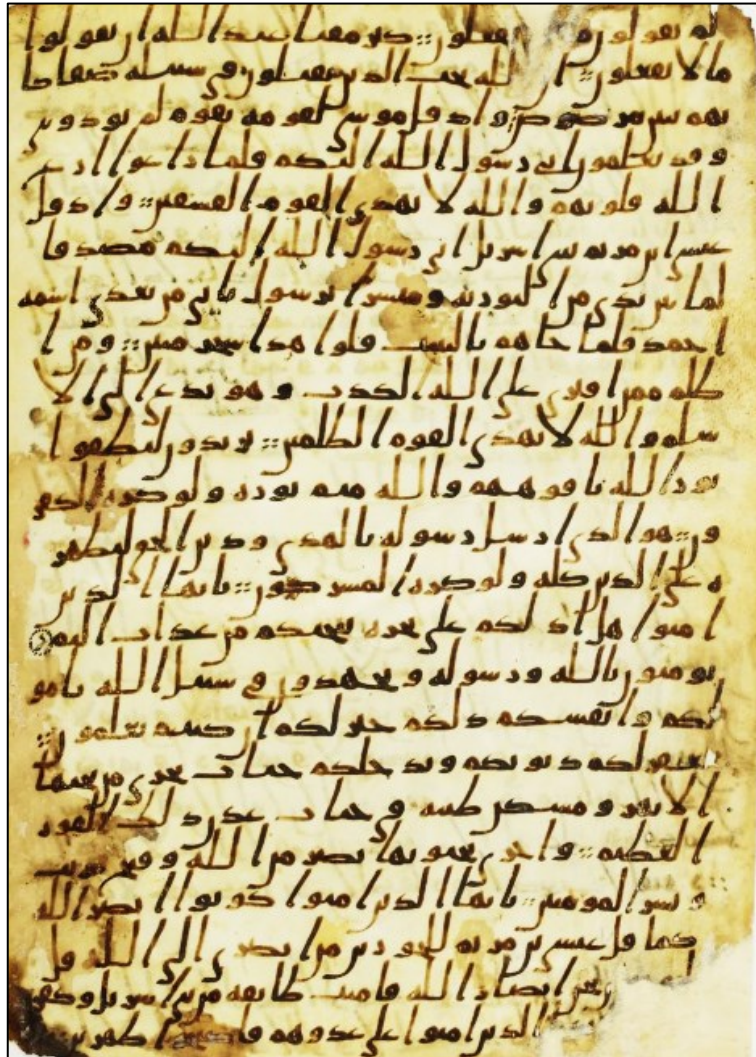 لم تقولون تفعلون :: كبر مقتا عند الله ان تقولوا
ما لا تفعلون :: ان الله يحب الذين يقتلون في سبيله صفا كا
نهم بنين مرصوص :: واذ قل موسى لقومه يقوم لم توذونني
وقد تعلمون اني رسول الله اليكم فلما زاغوا ازاغ
الله قلوبهم والله لا يهدي القوم الفسقين :: واذ قل
عيسى ابن مريم يبني اسريل اني رسول الله اليكم مصدقا
لما بين يدي من التوريه ومبشرا برسول ياتي من بعدي اسمه
احمد فلما جاهم بالبينت قلوا هذا سحر مبين :: ومن ا
ظلم ممن افترى على الله الكذب وهو يدعى الى الا
سلم والله لا يهدي القوم الظلمين :: يريدون ليطفوا
نور الله بافوههم والله متم نوره ولو كره الكفر
ون :: هو الذي ارسل رسوله بالهدى ودين الحق ليظهر
ه على الدين كله ولو كره المشركون :: يايها الذين
امنوا هل ادلكم على تجره تنجيكم من عذاب اليم
تومنون بالله ورسوله وتجهدون في سبيل الله بامو
لكم وانفسكم ذلكم خير لكم ان كنتم تعلمون ::
يغفر لكم ذنوبكم ويدخلكم جنات تجري من تحتها
الانهر ومسكن طيبه في جنات عدن ذلك الفوز
العظيم :: واخرى تحبونها نصر من الله وفتح قريب
وبشر المومنين :: يايها الذين امنوا كونوا انصر الله
كما قل عيسى بن مريم للحورين من انصري الى الله قل
نحن انصار الله فامنت طايفه من بني اسريل وكفر
الذين امنوا على عدوهم فاصبحوا ظهرين